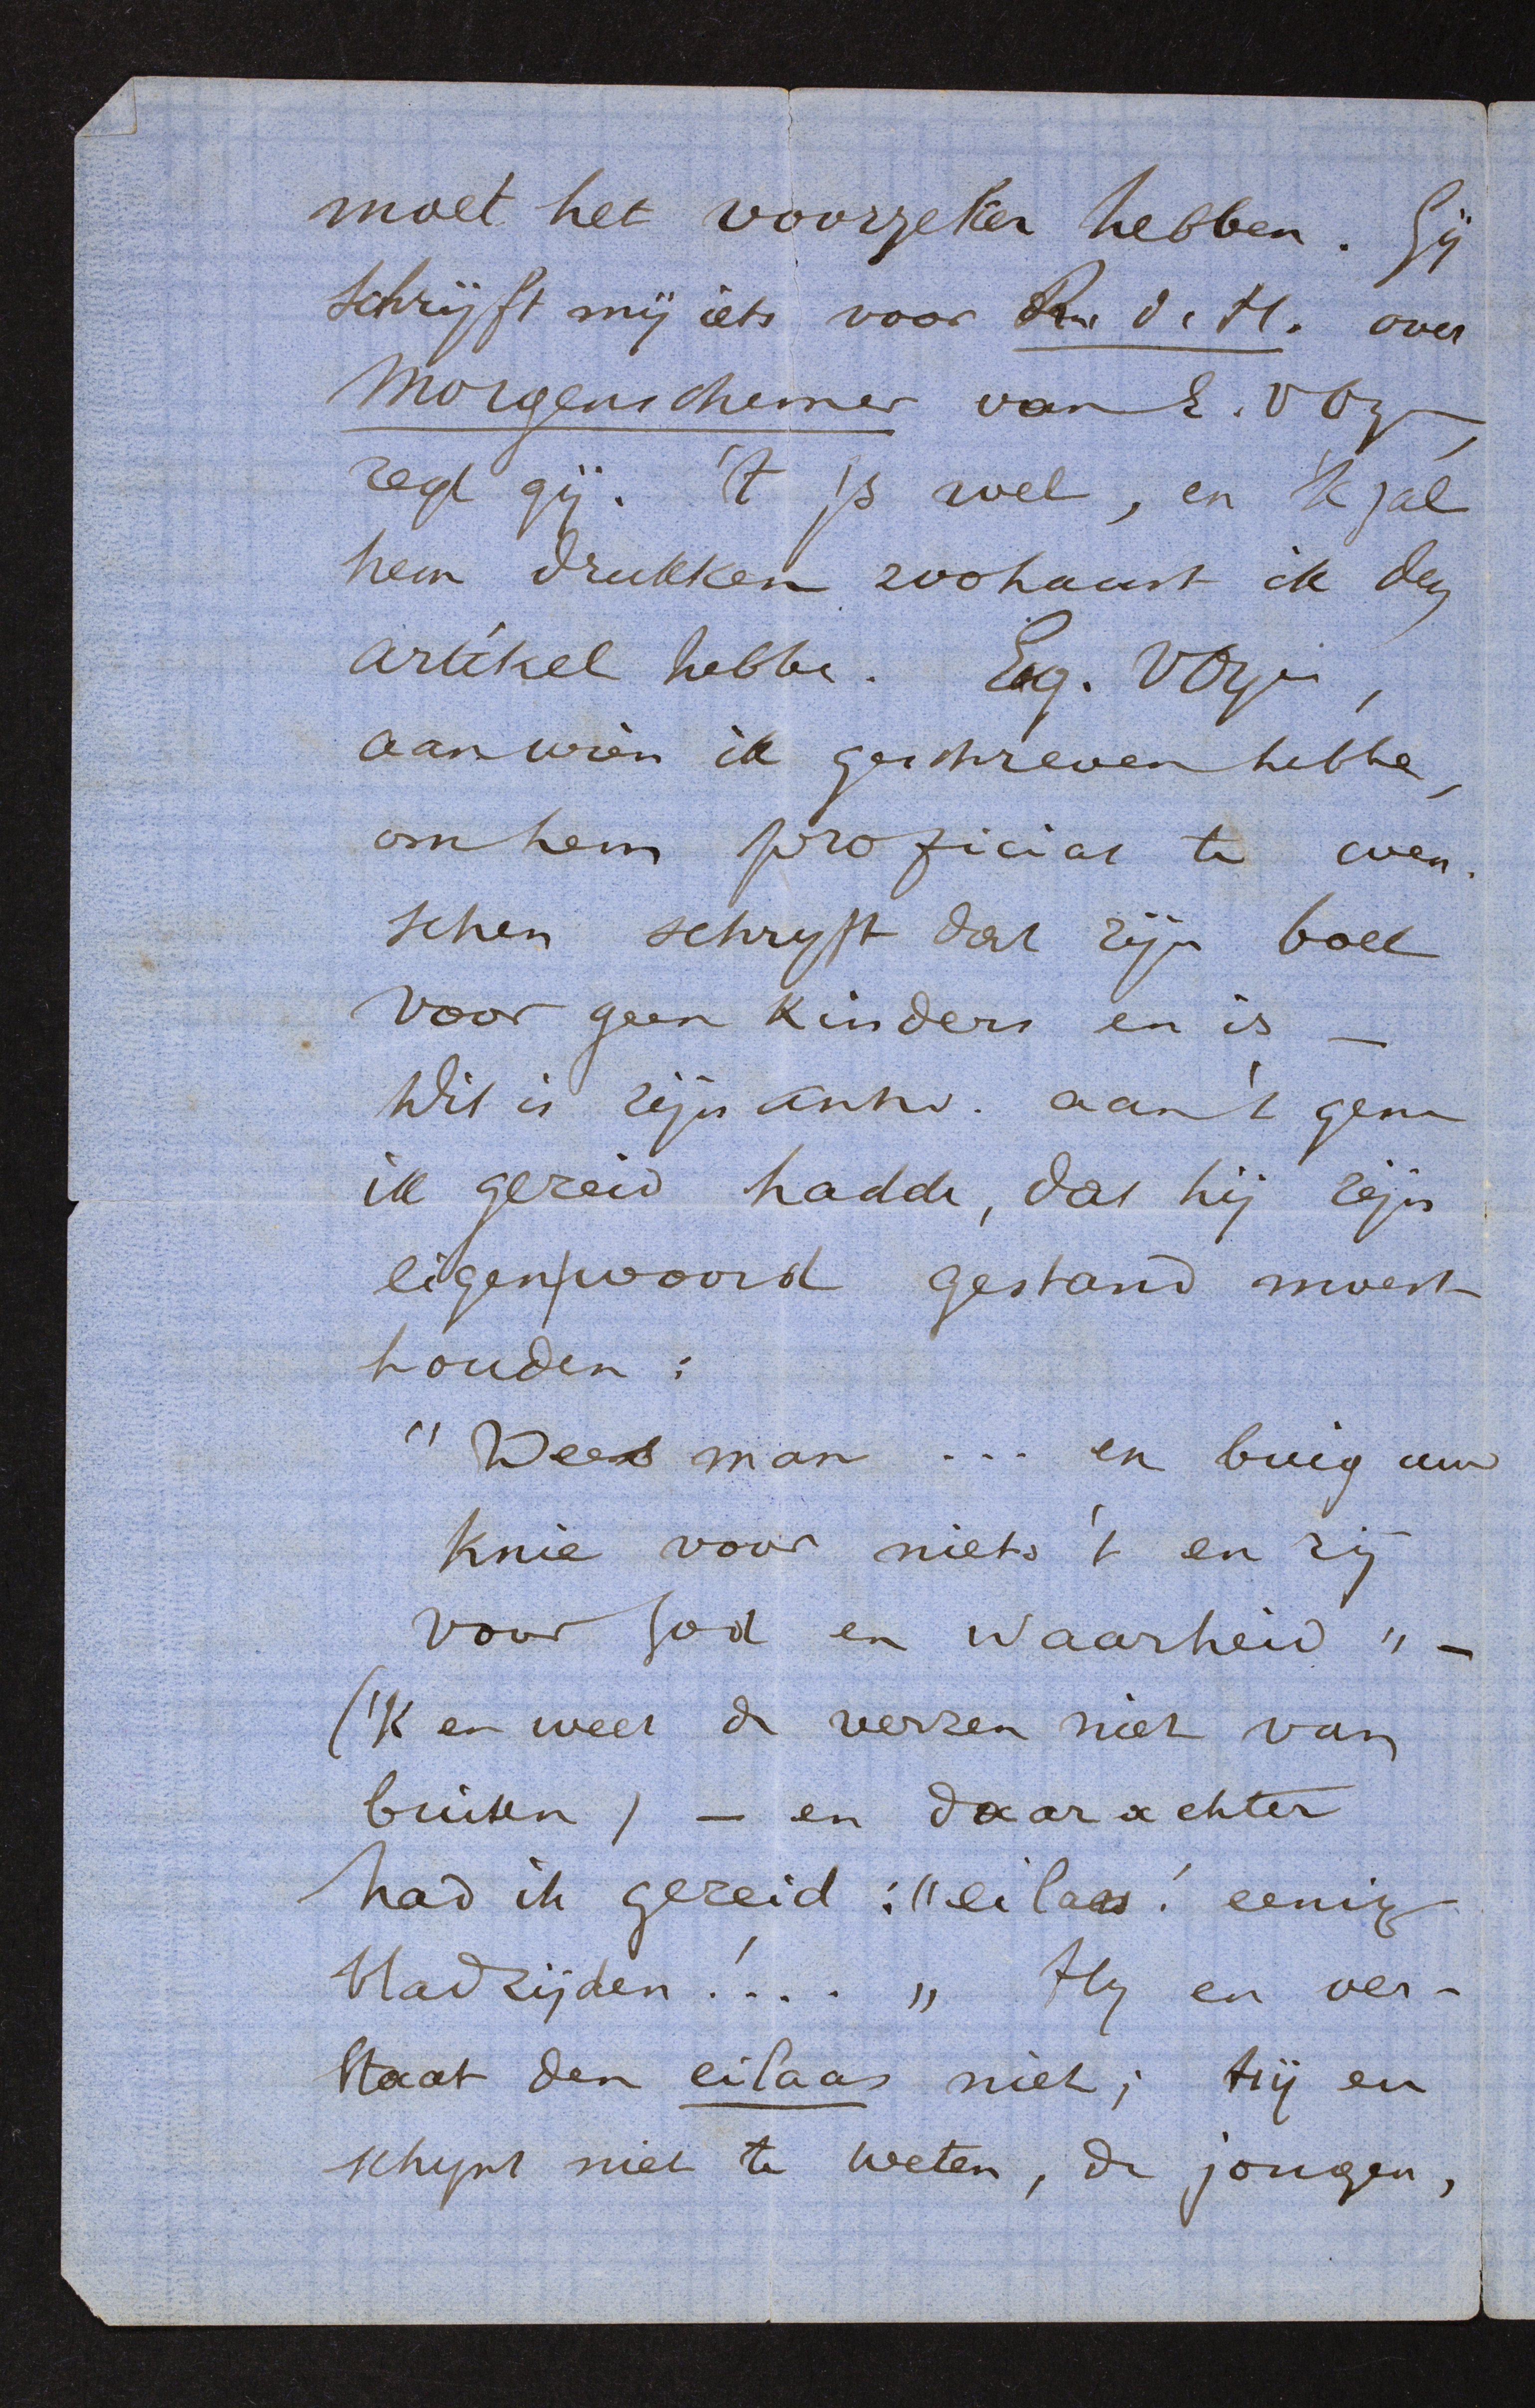 moet het voorzeker hebben. Gij
schrijft mij iets voor R. d. H. over
Morgenschemer van E. V Oye,
zegt gij. 't Is wel, en 'k zal
hem drukken zoohaast ik den
artikel hebbe. Eug. V Oye,
aan wien ik geschreven hebbe,
om hem proficiat te wen-
schen schryft dat zijn boek
voor geen kinders en is —
Dit is zijn antw. aan 't gene
ik gezeid hadde, dat hij zijn
eigen woord gestand moest
houden:
"Wees man ... en buig uw
knie voor niets 't en zij
voor God en Waarheid" —
('k en weet de verzen niet van
buiten) — en daarachter
had ik gezeid: "eilaas! eenige
bladzijden!..." Hy en ver-
staat den eilaas niet; hij en
schynt niet te weten, de jongen,